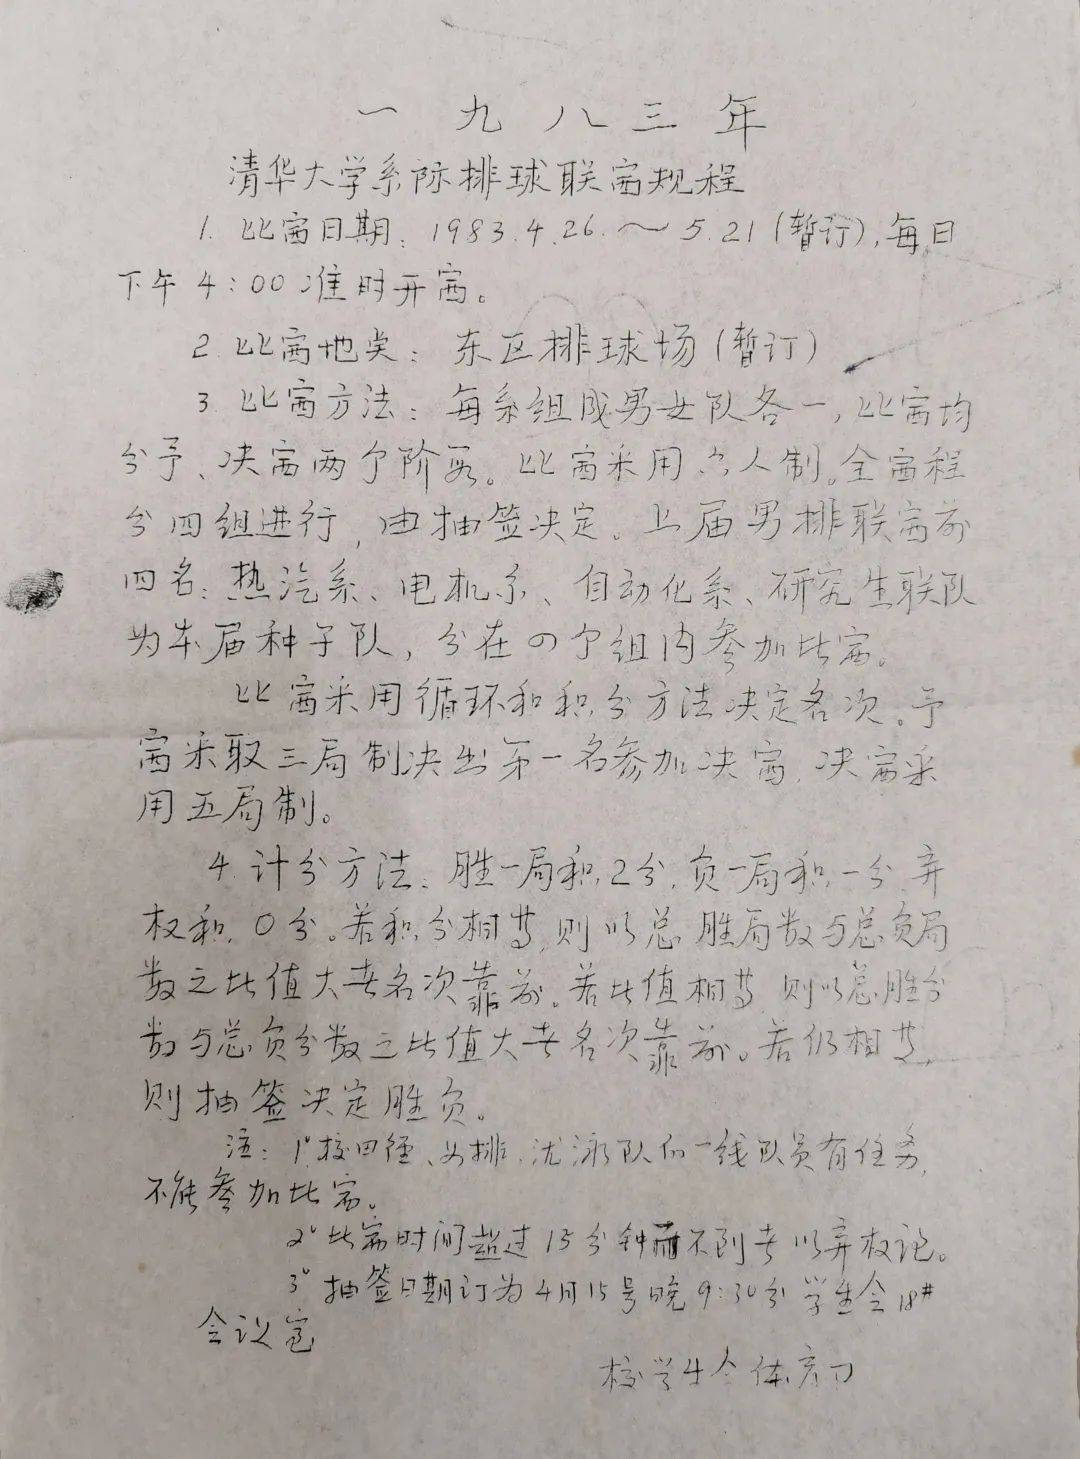 一九八三年
清华大学系际排球联赛规程
1. 比赛日期: 1983.4.26.～5.21(暂订),每日
下午4:00准时开赛。
2. 比赛地点: 东区排球场(暂订)
3. 比赛方法: 每系组成男女队各一,比赛均
分予、决赛两个阶段。比赛采用六人制。全赛程
分四组进行,由抽签决定。上届男排联赛前
四名:热汽系、电机系、自动化系、研究生联队
为本届种子队,分在四个组内参加比赛。
比赛采用循环和积分方法决定名次。予
赛采取三局制决出第一名参加决赛,决赛采
用五局制。
4. 计分方法: 胜一局积2分,负一局积一分,弃
权积0分。若积分相等,则以总胜局数与总负局
数之比值大者名次靠前。若比值相等,则以总胜分
数与总负分数之比值大者名次靠前。若仍相等,
则抽签决定胜负。
注: 1°校田径、女排、游泳队的一线队员有任务,
不能参加比赛。
2°比赛时间超过15分钟而不到者以弃权论。
3°抽签日期订为4月15号晚9:30分学生会18#
会议室
校学生会体育部